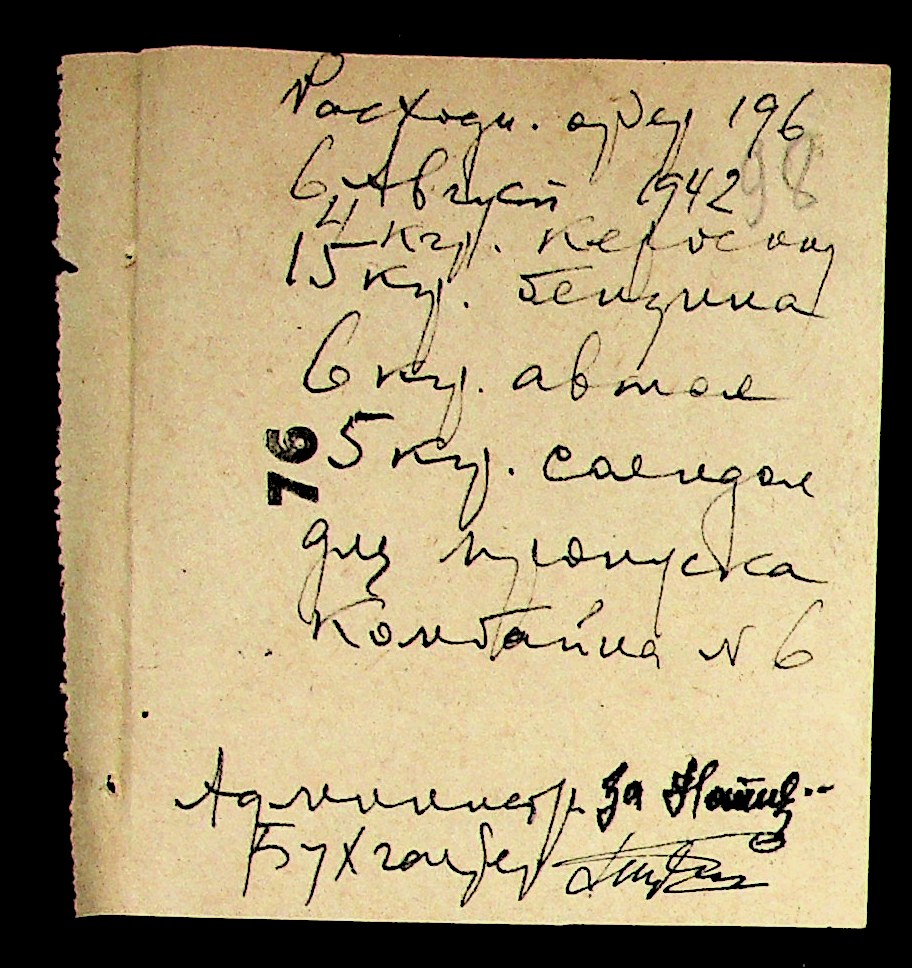 Расходн. ордер 196
98
6 Август 1942
4 кгр. керосину
15 кгр. бензина
6 кгр. автол
5 кгр. солидол
76
для пропуска
Комбайна N 6
Администр. За
Бухгалтер